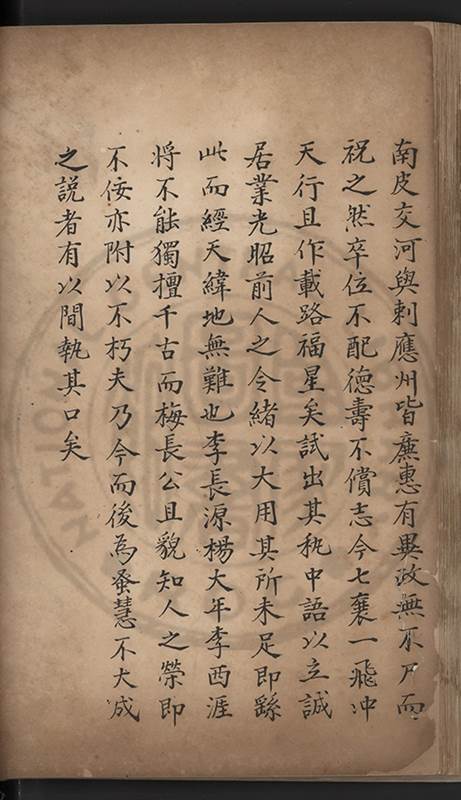 南皮交河與刺應州皆廉惠有異政無不尸而
祝之然卒位不配德壽不償志今七襄一飛冲
天行且作載路福星矣試出其秇中語以立誠
居業光昭前人之令緒以大用其所未足即繇
此而經天緯地無難也李長源楊大年李西涯
将不能獨擅千古而梅長公且貌知人之榮即
不佞亦附以不朽夫乃今而後為蚤慧不大成
之說者有以間執其口矣